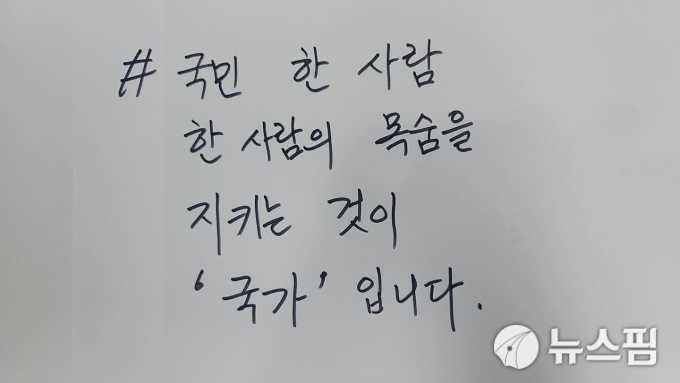 # 국민 한 사람
한 사람의 목숨을
지키는 것이
'국가' 입니다.
뉴스핌